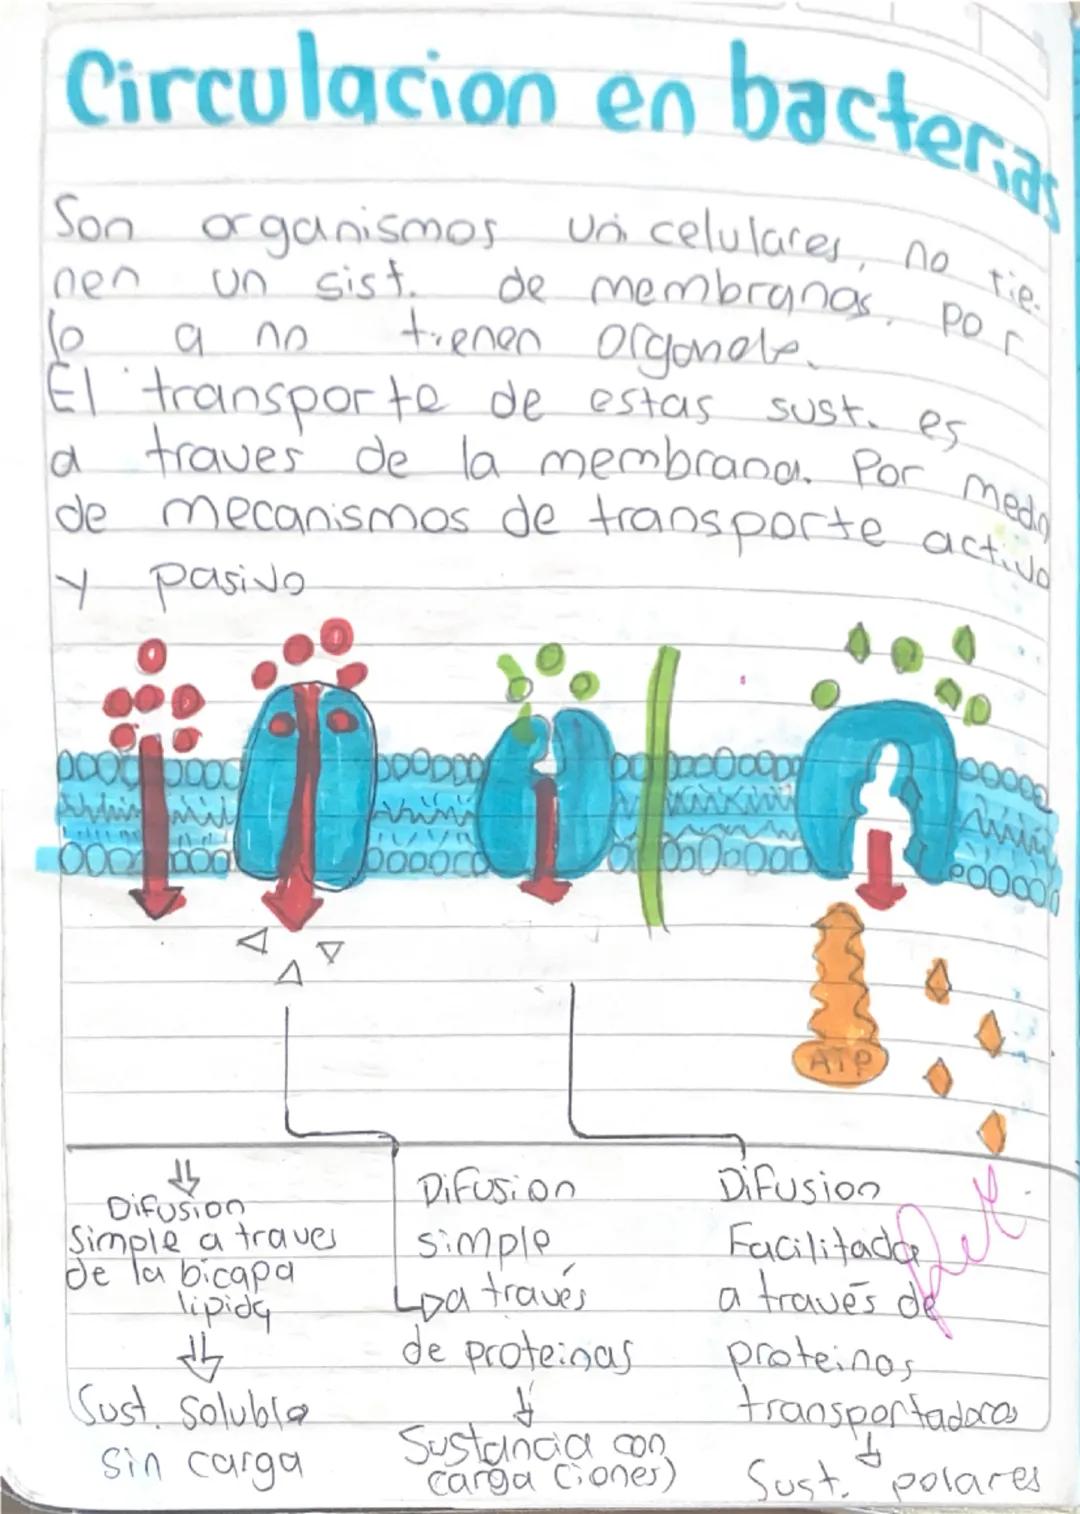 Circulacion en bacterias
Son organismos unicelulares, no tie-
nen un sist. de membranas, por
lo q no tienen organele.
El transporte de estas sust. es
a traves de la membrana. Por medio
de mecanismos de transporte activo
y pasivo
ATP
Difusion
simple a traves
de la bicapa
lipida
Sust. soluble
sin carga
Difusion
simple
a través
de proteinas
Sustancia con
carga (iones)
Difusion
Facilitada
a través de
proteinas
transportadoras
Sust. polares